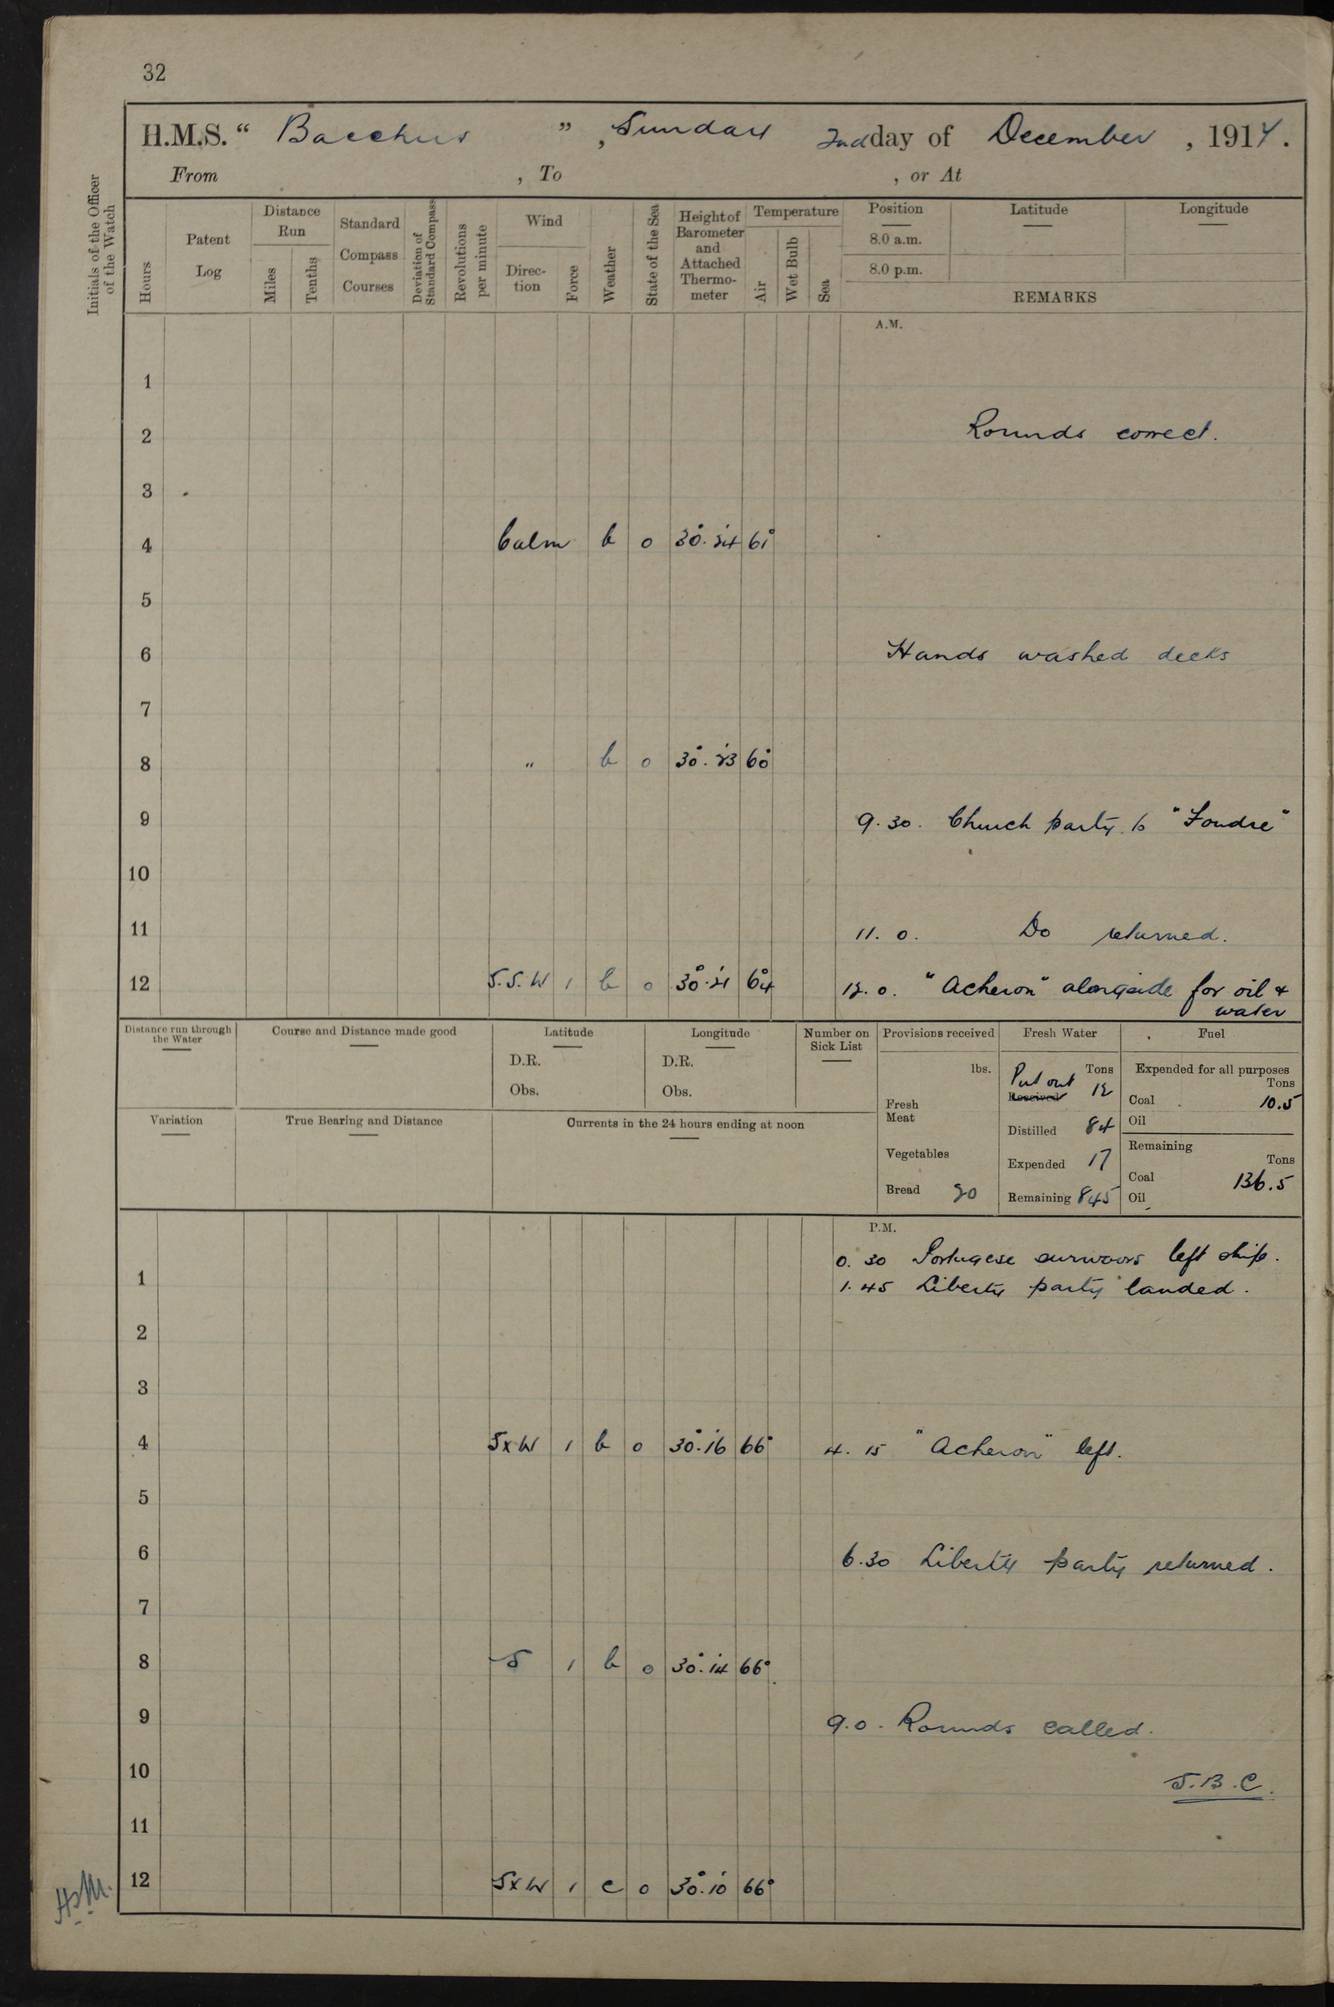 32
H.M.S. “ Bacchus ”, Sunday 2nd day of December, 1917.
From , To , or At
Initials of the Officer of the Watch
Hours
Patent Log
Distance Run
Miles
Tenths
Standard Compass Courses
Deviation of Standard Compass
Revolutions per minute
Wind
Direc-tion
Force
Weather
State of the Sea
Height of Barometer and Attached Thermo-meter
Temperature
Air
Wet Bulb
Sea
Position Latitude Longitude
8.0 a.m.
8.0 p.m.
REMARKS
A.M.
1
2 Rounds correct.
3
4 Calm b o 30°.24' 61°
5
6 Hands washed decks
7
8 " b o 30°.23' 60°
9 9.30. Church party to "Foudre"
10
11 11.0. Do returned.
12 S.S.W 1 b o 30°.21' 64° 12.0. "Acheron" alongside for oil &
water
Distance run through the Water
Course and Distance made good
Latitude
D.R.
Obs.
Longitude
D.R.
Obs.
Number on Sick List
Provisions received
lbs.
Fresh Meat
Vegetables
Bread 20
Fresh Water
Tons
Put out 12
Received
Distilled 84
Expended 17
Remaining 845
Fuel
Expended for all purposes
Tons
Coal 10.5
Oil
Remaining
Tons
Coal 136.5
Oil
Variation
True Bearing and Distance
Currents in the 24 hours ending at noon
P.M.
0.30 Portugese survivors left ship.
1 1.45 Liberty party landed.
2
3
4 SxW 1 b o 30°.16' 66° 4.15 "Acheron" left.
5
6 6.30 Liberty party returned.
7
8 S 1 b o 30°.14' 66°
9 9.0. Rounds called.
10 S.B.C.
11
12 SxW 1 c o 30°.10' 66°